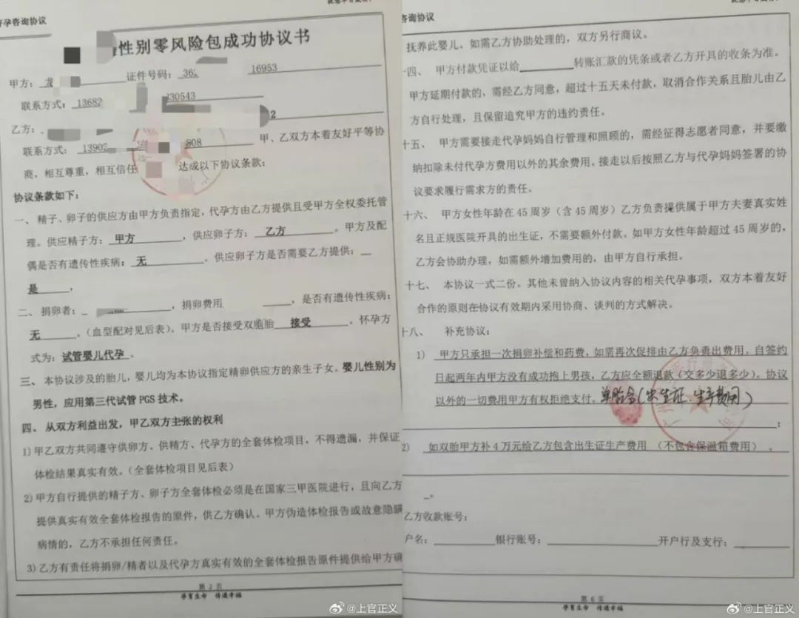 孕咨询协议
性别零风险包成功协议书
甲方：龙 证件号码：36 16953
联系方式：13682 130543
乙方： 2
联系方式：13902 808 甲、乙双方本着友好平等协
商，相互尊重，相互信任 达成以下协议条款：
协议条款如下：
一、精子、卵子的供应方由甲方负责指定，代孕方由乙方提供且受甲方全权委托管
理。供应精子方：甲方，供应卵子方：乙方。甲方及配
偶是否有遗传性疾病：无。供应卵子方是否需要乙方提供：
是。
二、捐卵者： ，捐卵费用 ，是否有遗传性疾病：
无。（血型配对见后表）。甲方是否接受双胞胎 接受。怀孕方
式为：试管婴儿代孕。
三、本协议涉及的胎儿，婴儿均为本协议指定精卵供应方的亲生子女。婴儿性别为
男性，应用第三代试管 PGS 技术。
四、从双方利益出发，甲乙双方主张的权利
1）甲乙双方共同遵守供卵方、供精方、代孕方的全套体检项目，不得遗漏，并保证
体检结果真实有效。（全套体检项目见后表）
2）甲方自行提供的精子方、卵子方全套体检必须是在国家三甲医院进行，且向乙方
提供真实有效全套体检报告的原件，供乙方确认。甲方伪造体检报告或故意隐瞒
病情的，乙方不承担任何责任。
3）乙方有责任将捐卵/精者以及代孕方真实有效的全套体检报告原件提供给甲方确
第 1 页
孕育生命 传递幸福
咨询协议
抚养此婴儿。如需乙方协助处理的，双方另行商议。
十四、甲方付款凭证以给 转账汇款的凭条或者乙方开具的收条为准。
甲方延期付款的，需经乙方同意，超过十五天未付款，取消合作关系且胎儿由乙
方自行处理，且保留追究甲方的违约责任。
十五、甲方需要接走代孕妈妈自行管理和照顾的，需经征得志愿者同意，并要缴
纳扣除未付代孕方费用以外的其余费用，接走以后按照乙方与代孕妈妈签署的协
议要求履行需求方的责任。
十六、甲方女性年龄在 45 周岁（含 45 周岁）乙方负责提供属于甲方夫妻真实姓
名且正规医院开具的出生证，不需要额外付款。如甲方女性年龄超过 45 周岁的，
乙方会协助办理，如需额外增加费用的，由甲方自行承担。
十七、本协议一式二份，其他未曾纳入协议内容的相关代孕事项，双方本着友好
合作的原则在协议有效期内采用协商、谈判的方式解决。
十八、补充协议：
1）甲方只承担一次捐卵补偿和药费，如需再次促排由乙方负责出费用。自签约
日起两年内甲方没有成功抱上男孩，乙方应全额退款（交多少退多少）。协议
以外的一切费用甲方有权拒绝支付。单胎含（出生证 生产费用）
2）如双胎甲方补 4 万元给乙方包含出生证生产费用（不包含保温箱费用）。
乙方收款账号：
户名： 银行账号： 开户行及支行：
第 6 页
孕育生命 传递幸福
@上官正义
@上官正义